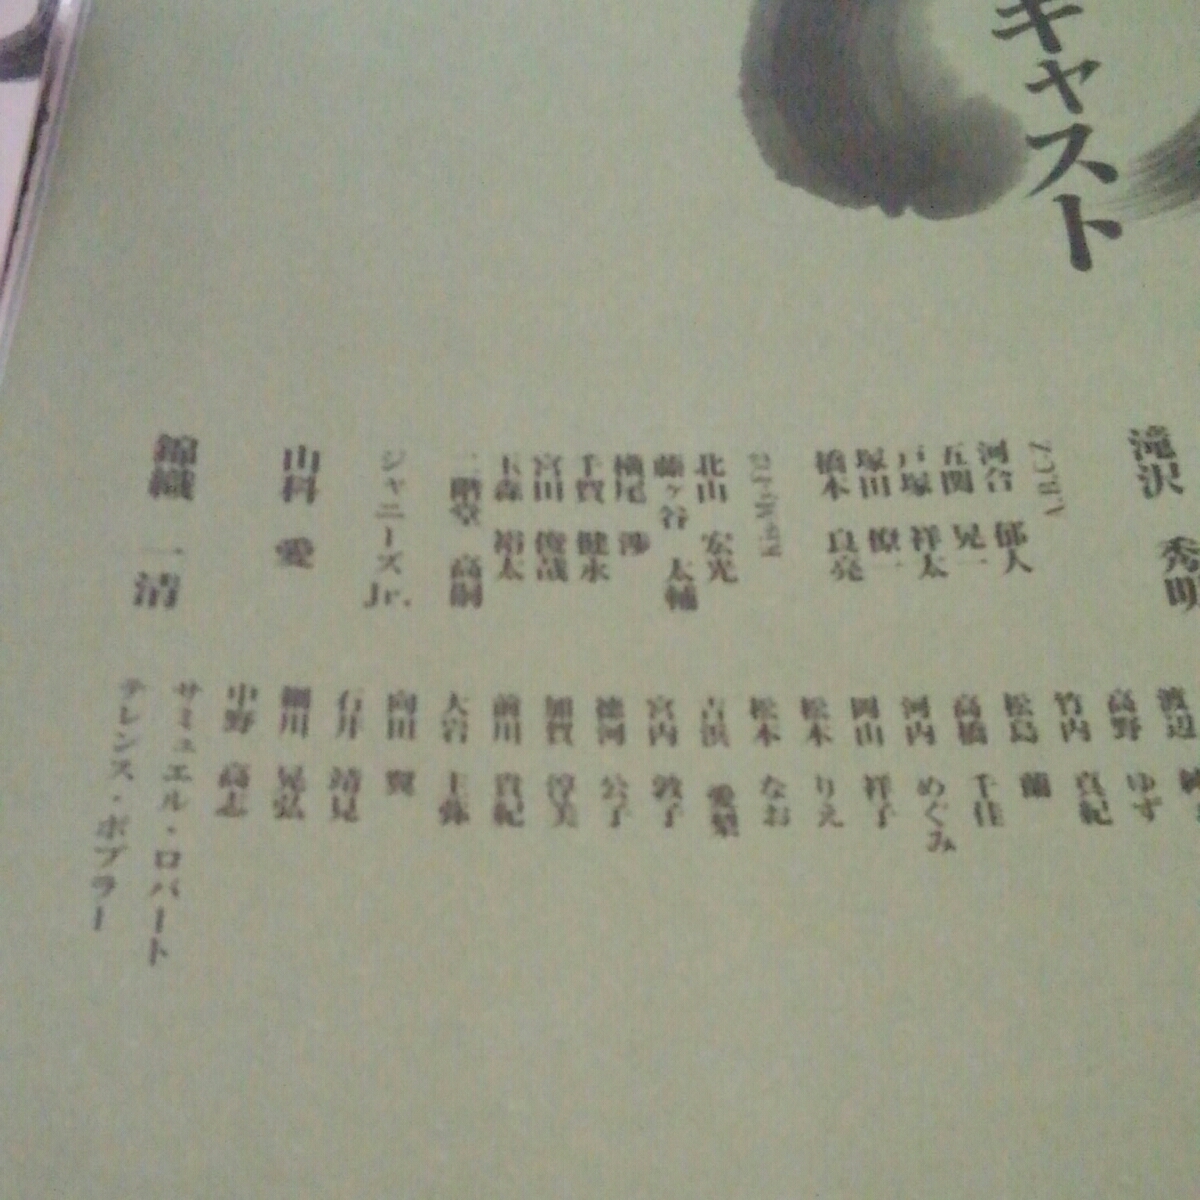 キャスト
滝沢 秀明
A.B.C-Z
河合 郁人
五関 晃一
戸塚 祥太
塚田 僚一
橋本 良亮
Kis-My-Ft2
北山 宏光
藤ヶ谷 太輔
横尾 渉
千賀 健永
宮田 俊哉
玉森 裕太
二階堂 高嗣
ジャニーズJr.
山科 愛
錦織 一清
渡辺
高野 ゆず
竹内 真紀
松島 蘭
高橋 千佳
河内 めぐみ
岡山 祥子
松本 りえ
松本 なお
吉浜 愛梨
宮内 敦子
徳河 公子
加賀 淳美
前川 貴紀
大岩 主弥
向田 翼
石井 靖見
細川 晃弘
中野 高志
サミュエル・ロバート
テレンス・ポプラー